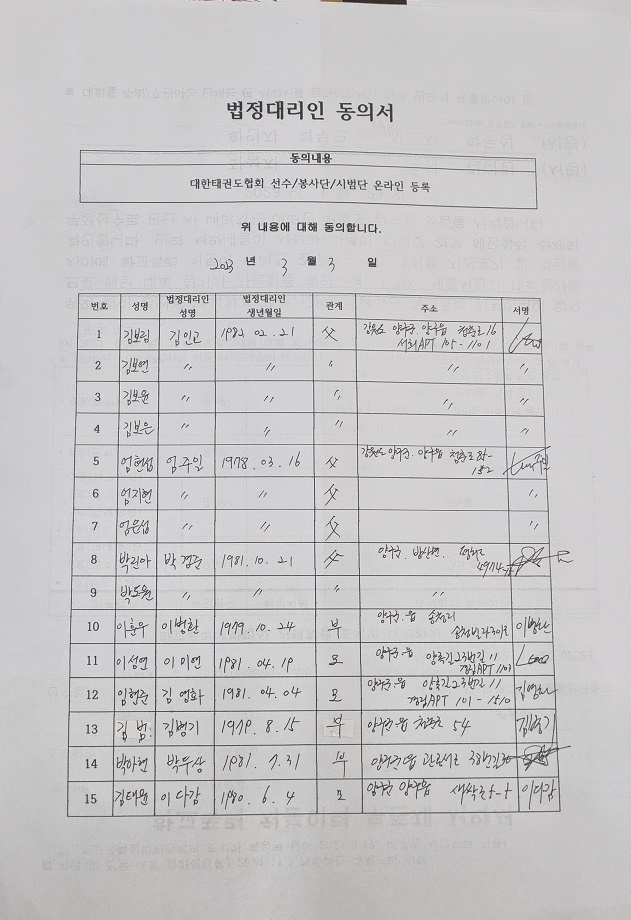 법정대리인 동의서
동의내용
대한태권도협회 선수/봉사단/시범단 온라인 등록
위 내용에 대해 동의합니다.
2023 년 3 월 3 일
번호 성명 법정대리인 성명 법정대리인 생년월일 관계 주소 서명
1 김보림 김인고 1982. 02. 21 父 강원도 양구군. 양구읍 청춘로 16
APT 105-1101
2 김보연 〃 〃 〃 〃 〃
3 김보윤 〃 〃 〃 〃 〃
4 김보은 〃 〃 〃 〃 〃
5 엄현섭 엄주일 1978. 03. 16 父 강원도 양구군. 양구읍
6 엄지현 〃 〃 父 〃
7 엄윤섭 〃 〃 父 〃
8 박린아 박경준 1981. 10. 21 父 양구군. 방산면.
9 박도원 〃 〃 〃 〃
10 이훈우 이병환 1979. 10. 24 부 양구군.읍 송청리
이병환
11 이성연 이미연 1981. 04. 19 모 양구군.읍 양록길23번길 11
APT 1103
12 임현준 김영화 1981. 04. 04 모 양구군.읍 양록길23번길 11
APT 101-1510 김영화
13 김범 김병기 1979. 8. 15 부 양구군.읍 청춘로 54 김병기
14 박하현 박무상 1981. 7. 31 부 양구군.읍 관공서로
15 김태윤 이다감 1980. 6. 4 모 양구군 양구읍 이다감